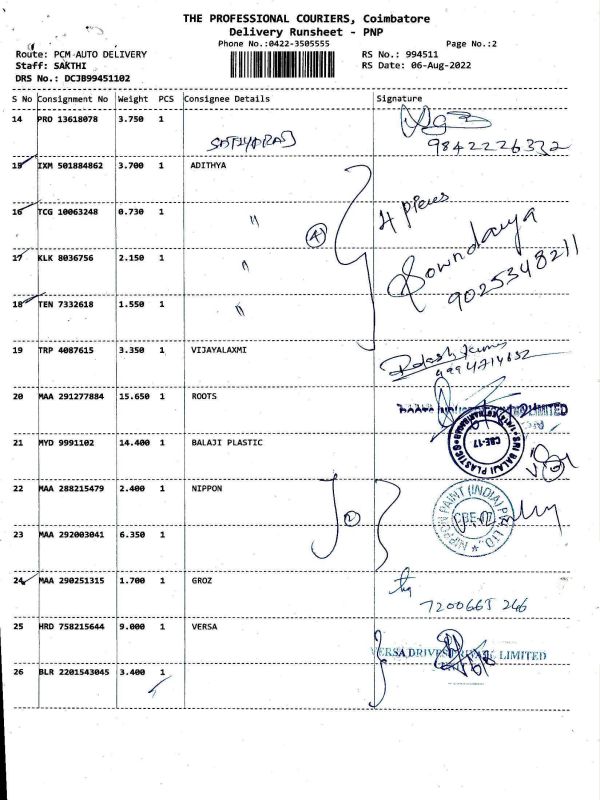 THE PROFESSIONAL COURIERS, Coimbatore
Delivery Runsheet - PNP
Phone No.:0422-3505555 Page No.:2
Route: PCM AUTO DELIVERY RS No.: 994511
Staff: SAKTHI RS Date: 06-Aug-2022
DRS No.: DCJB99451102
S No Consignment No Weight PCS Consignee Details Signature
14 PRO 13618078 3.750 1
SATHYARAJ 9842226332
15 IXM 501884862 3.700 1 ADITHYA
16 TCG 10063248 0.730 1 " 4 4 pieces
17 KLK 8036756 2.150 1 " Sowndarya
18 TEN 7332618 1.550 1 " 9025348211
19 TRP 4087615 3.350 1 VIJAYALAXMI
9994714652
20 MAA 291277884 15.650 1 ROOTS
LIMITED
21 MYD 9991102 14.400 1 BALAJI PLASTIC
SRI BALAJI PLASTICS
CBE-17
22 MAA 288215479 2.400 1 NIPPON
2 NIPPON PAINT (INDIA) PVT. LTD.
23 MAA 292003041 6.350 1
24 MAA 290251315 1.700 1 GROZ
25 HRD 758215644 9.000 1 VERSA
VERSA DRIVES LIMITED
26 BLR 2201543045 3.400 1